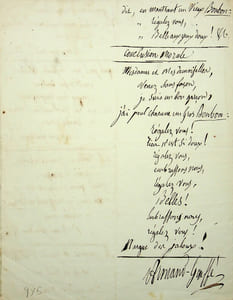 dit, en montrant un vieux Bonbon:
" régalez vous,
" Belle aux yeux doux! &c
Conclusion morale
Mesdames et Mesdemoiselles,
Venez sans façon,
je suis un bon garçon,
j'ai pour chacune un gros Bonbon:
régalez vous!
Rien n'est si doux!
régalez vous,
embrassons nous,
régalez vous,
Belles!
embrassons nous,
régalez vous!
Nargue des jaloux.
Armand-Gouffé